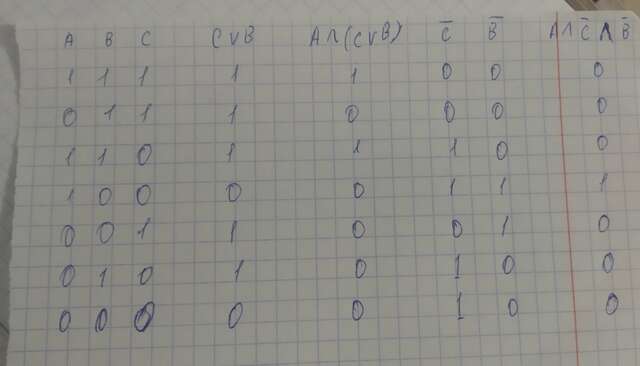 A B C C∨B A∧(C∨B) C̅ B̅ A∧C̅∧B̅
1 1 1 1 1 0 0 0
0 1 1 1 0 0 0 0
1 1 0 1 1 1 0 0
1 0 0 0 0 1 1 1
0 0 1 1 0 0 1 0
0 1 0 1 0 1 0 0
0 0 0 0 0 1 0 0